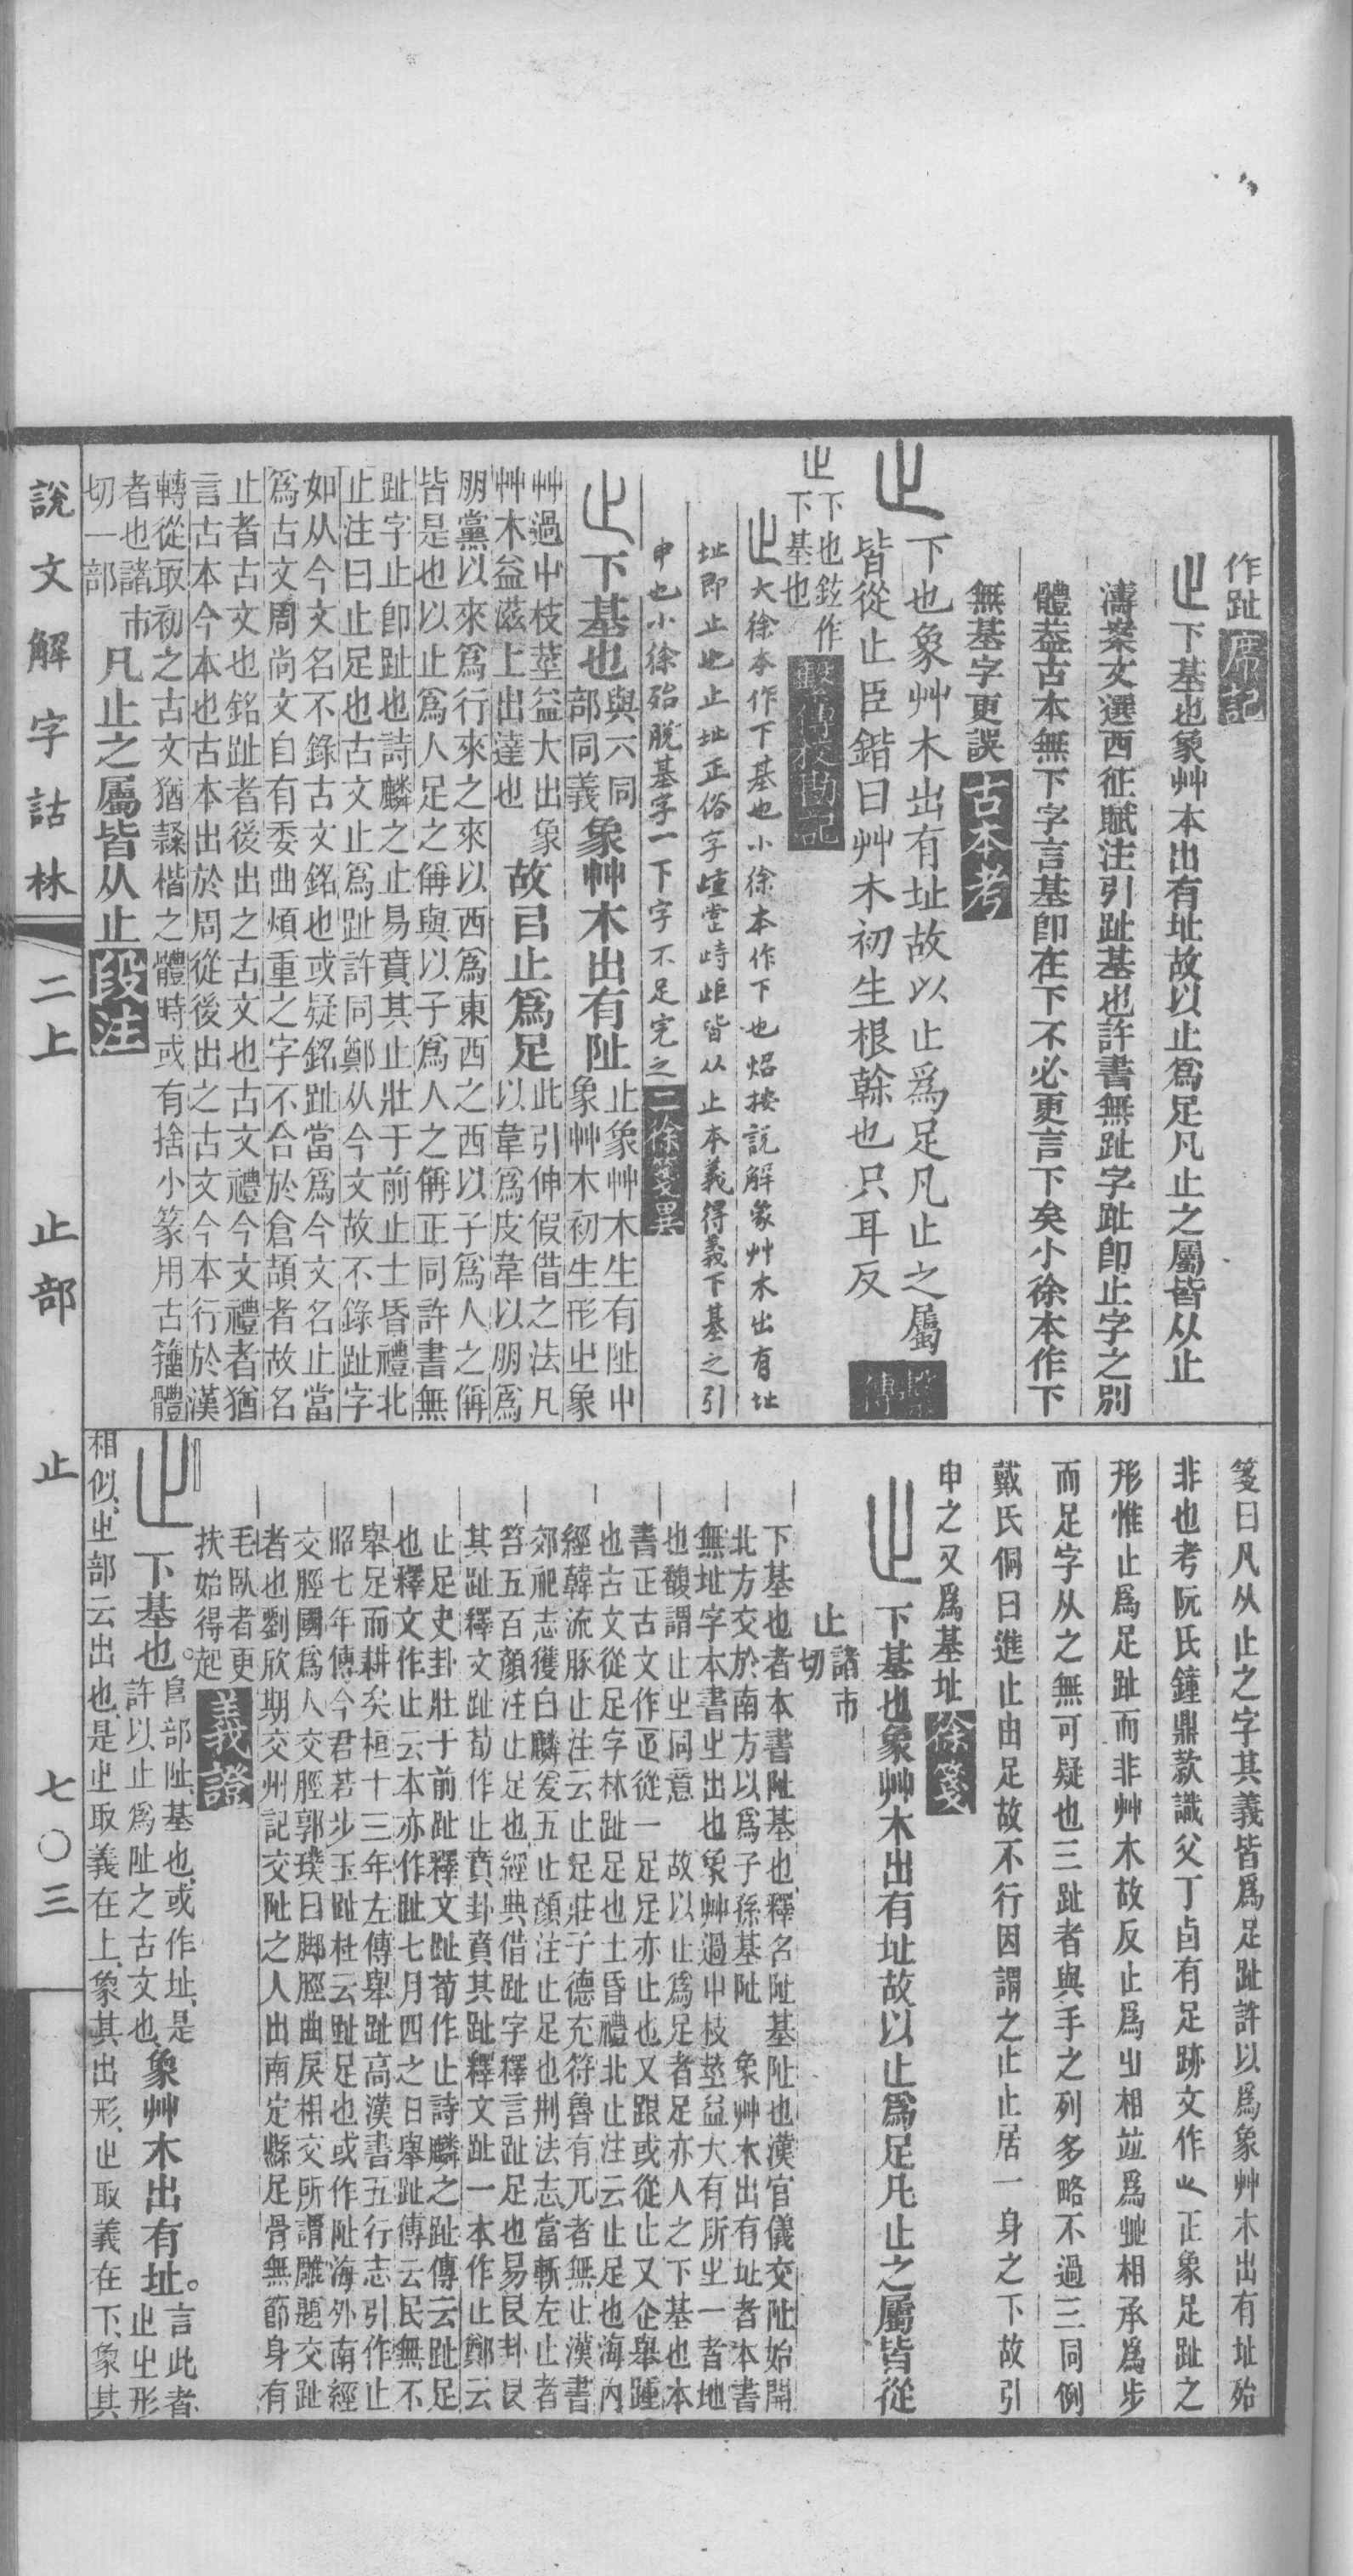 作趾席記
止下基也象艸木出有址故以止爲足凡止之屬皆从止
濤案文選西征賦注引趾基也許書無趾字趾卽止字之別
體葢古本無下字言基卽在下不必更言下矣小徐本作下
無基字更誤古本考
止下也象艸木出有址故以止爲足凡止之屬
皆從止臣鍇曰艸木初生根榦也只耳反繫傳
止下也鉉作
下基也繫傳校勘記
止大徐本作下基也小徐本作下也炤按說解象艸木出有址
址即止也止址正俗字歱堂峙歫皆从止本義得義下基之引
申也小徐殆脫基字一下字不足完之二徐箋異
止下基也與六同
部同義象艸木出有阯止象艸木生有阯屮
象艸木初生形㞢象
艸過屮枝莖益大出象
艸木益滋上出達也故㠯止爲足此引伸假借之法凡
以韋爲皮韋以朋爲
朋黨以來爲行來之來以西爲東西之西以子爲人之偁
皆是也以止爲人足之偁與以子爲人之偁正同許書無
趾字止卽趾也詩麟之止易賁其止壯于前止士昏禮北
止注曰止足也古文止爲趾許同鄭从今文故不錄趾字
如从今文名不錄古文銘也或疑銘趾當爲今文名止當
爲古文周尚文自有委曲煩重之字不合於倉頡者故名
止者古文也銘趾者後出之古文也古文禮今文禮者猶
言古本今本也古本出於周從後出之古文今本行於漢
轉從㝡初之古文猶隸楷之體時或有捨小篆用古籒體
者也諸市
切一部凡止之屬皆从止段注
箋曰凡从止之字其義皆爲足趾許以爲象艸木出有址殆
非也考阮氏鐘鼎款識父丁卣有足跡文作止正象足趾之
形惟止爲足趾而非艸木故反止爲㞢相竝爲址相承爲步
而足字从之無可疑也三趾者與手之列多略不過三同例
戴氏侗曰進止由足故不行因謂之止止居一身之下故引
申之又爲基址徐箋
止下基也象艸木出有址故以止爲足凡止之屬皆從
止諸市
切
下基也者本書阯基也釋名阯基阯也漢官儀交阯始開
北方交於南方以爲子孫基阯　象艸木出有址者本書
無址字本書㞢出也象艸過屮枝莖益大有所㞢一者地
也馥謂止㞢同意　故以止爲足者足亦人之下基也本
書正古文作𤴓從一足足亦止也又跟或從止又企舉踵
也古文從足字林趾足也士昏禮北止注云止足也海內
經韓流豚止注云止足莊子德充符魯有兀者無止漢書
郊祀志獲白麟爰五止顏注止足也刑法志當斬左止者
笞五百顏注止足也經典借趾字釋言趾足也易艮卦艮
其趾釋文趾荀作止賁卦賁其趾釋文趾一本作止鄭云
止足史卦壯于前趾釋文趾荀作止詩麟之趾傳云趾足
也釋文作止云本亦作趾七月四之日舉趾傳云民無不
舉足而耕矣桓十三年左傳舉趾高漢書五行志引作止
昭七年傳今君若步玉趾杜云趾足也或作阯海外南經
交脛國爲人交脛郭璞曰腳脛曲戾相交所謂雕題交趾
者也劉欣期交州記交阯之人出南定縣足骨無節身有
毛臥者更
扶始得起義證
止下基也。𨸏部阯、基也、或作址、是
許以止爲阯之古文也象艸木出有址。言此者
止㞢形
相似、㞢部云出也、是㞢取義在上、象其出形、止取義在下、象其
說文解字詁林　二上　止部　止　七〇三